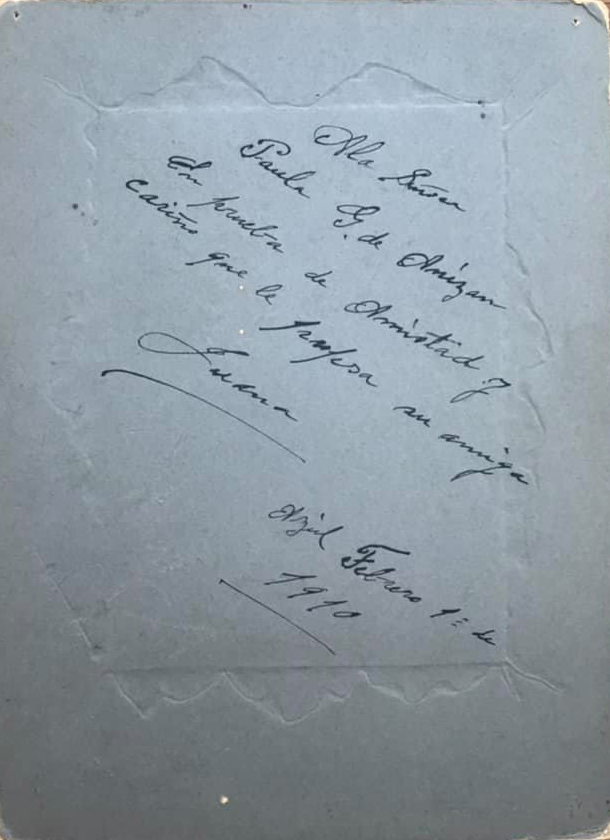 A la Señora
Paula G. de Anizan
En prueba de Amistad y
cariño que le profesa su amiga
Juana
Azul Febrero 1º de
1910